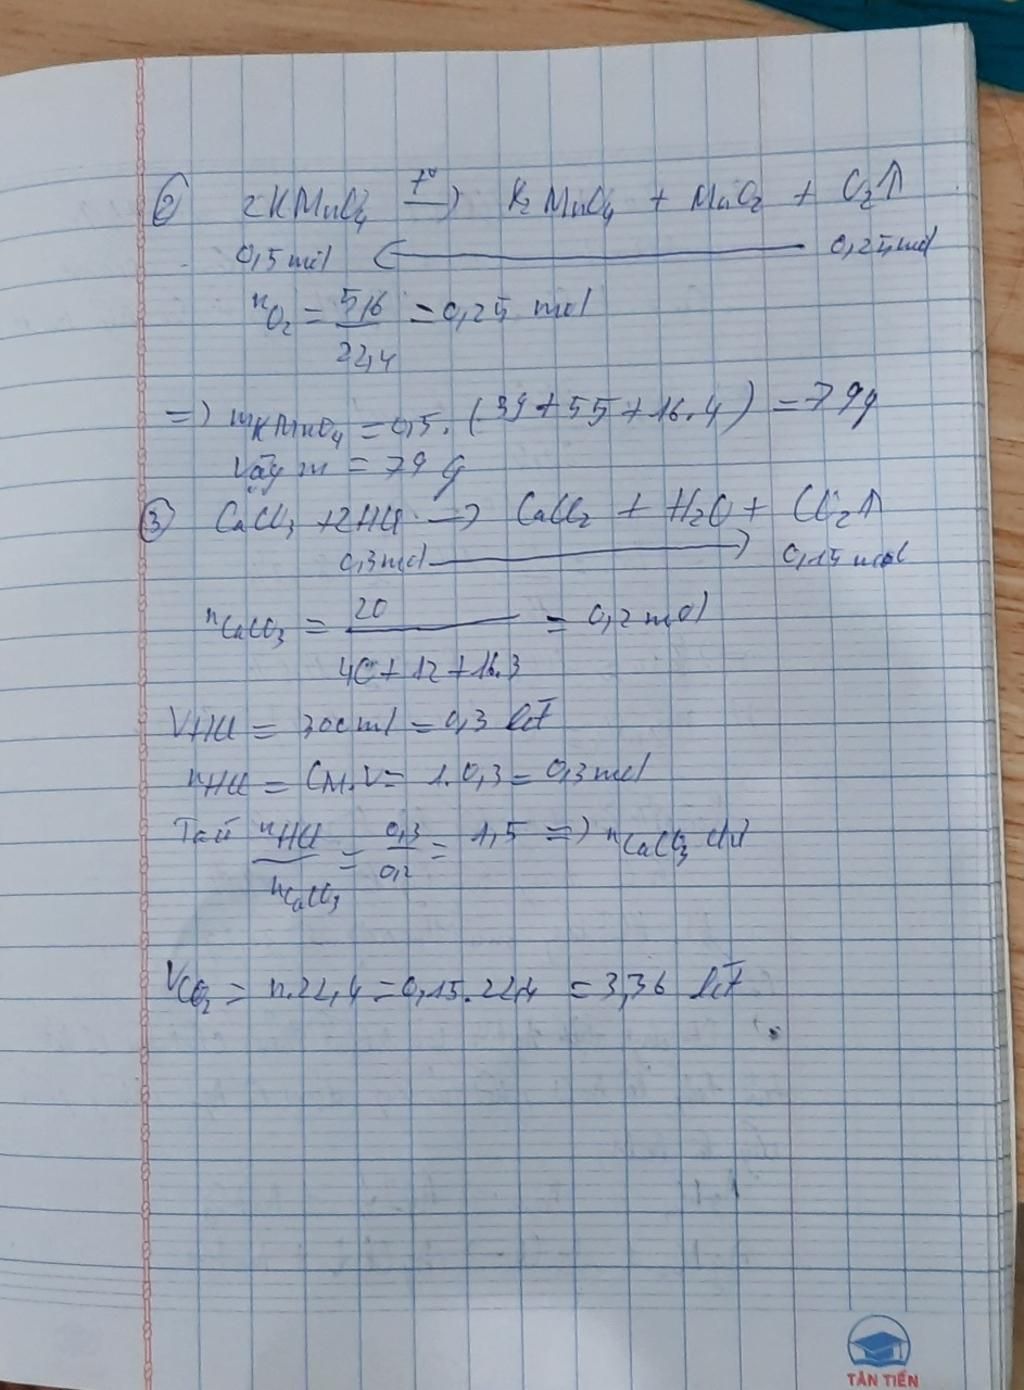 ② 2KMnO4 t° → K2MnO4 + MnO2 + O2↑
0,5 mol ← 0,25 mol
nO2 = 5,6/22,4 = 0,25 mol
=> mKMnO4 = 0,5. (39+55+16.4) = 79g
Vậy m = 79 g
③ CaCO3 + 2HCl → CaCl2 + H2O + CO2↑
0,3mol → 0,15 mol
nCaCO3 = 20/40+12+16.3 = 0,2 mol
VHCl = 300ml = 0,3 lít
nHCl = CM.V = 1.0,3 = 0,3 mol
nHCl/nCaCO3 = 0,3/0,2 = 1,5 => nCaCO3 dư
VCO2 = n.22,4 = 0,15.22,4 = 3,36 lít
TÂN TIẾN